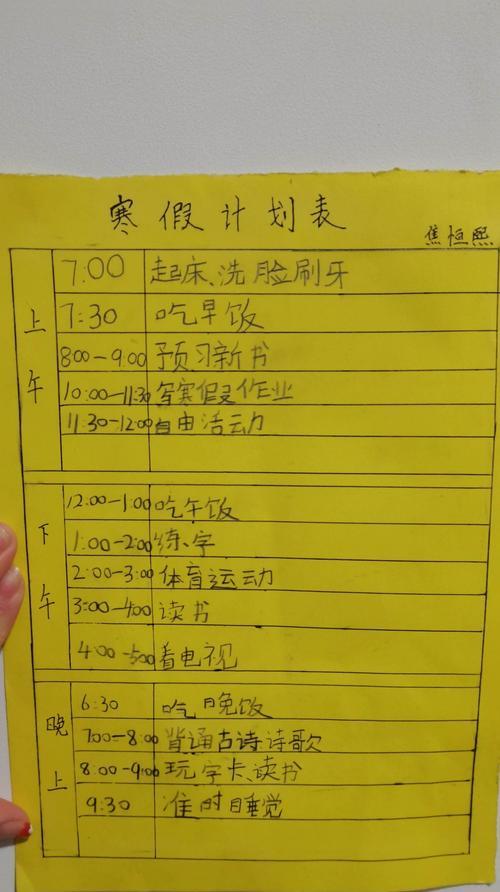 寒假计划表
焦恒熙
上午
7:00 起床、洗脸刷牙
7:30 吃早饭
8:00-9:00 预习新书
10:00-11:30 写寒假作业
11:30-12:00 自由活动
下午
12:00-1:00 吃午饭
1:00-2:00 练字
2:00-3:00 体育运动
3:00-4:00 读书
4:00-5:00 看电视
晚上
6:30 吃晚饭
7:00-8:00 背诵古诗诗歌
8:00-9:00 玩字卡、读书
9:30 准时睡觉